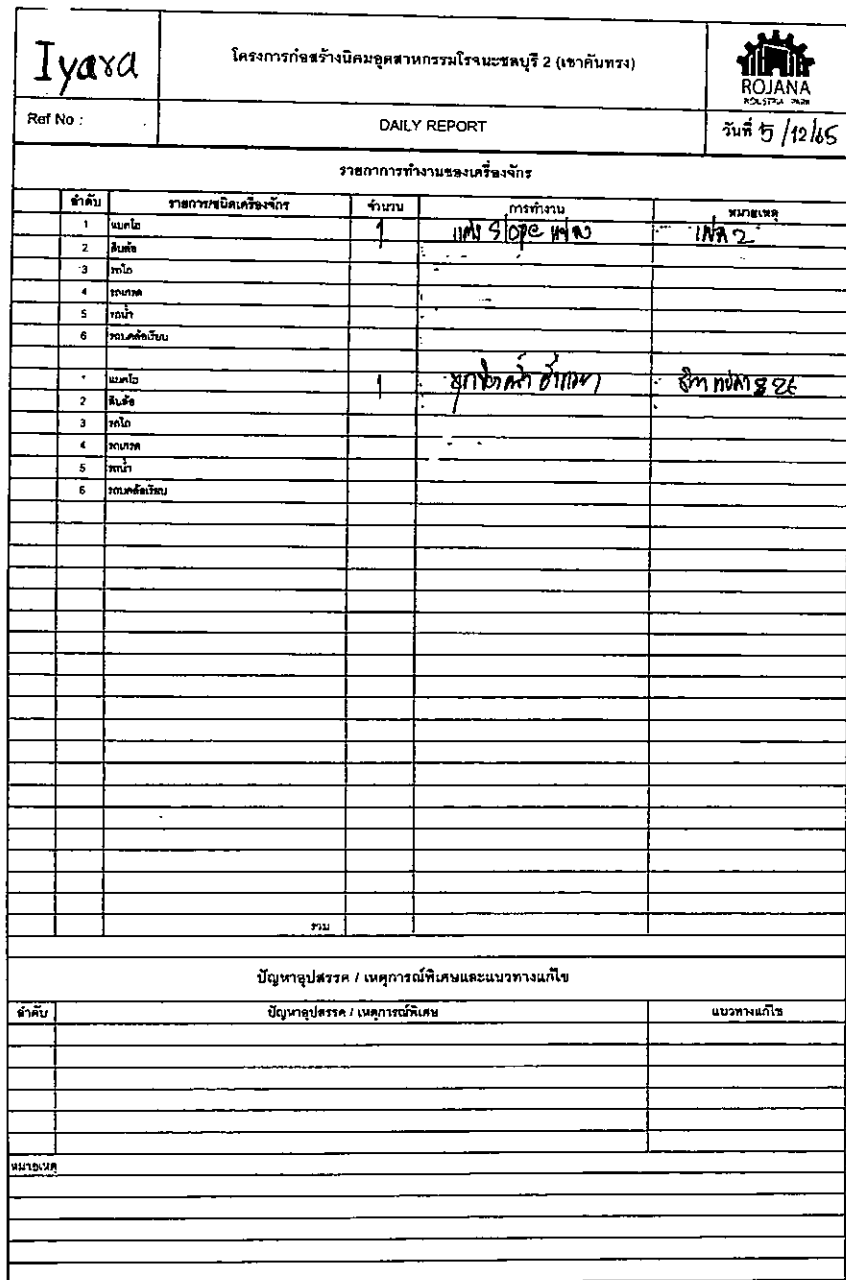 Iyara
โครงการก่อสร้างนิคมอุตสาหกรรมโรจนะชลบุรี 2 (เขาคันทรง)
ROJANA
INDUSTRIAL PARK
Ref No :
DAILY REPORT
วันที่ 5/12/65
รายการการทำงานของเครื่องจักร
ลำดับ รายการ/ชนิดเครื่องจักร จำนวน การทำงาน หมายเหตุ
1 แบคโฮ 1 แต่ง Slope เฟส 2
2 ตีนต๊ะ
3 รถโถ
4 รถเกรด
5 รถน้ำ
6 รถบดล้อเรียบ
แบคโฮ 1
2 ตีนต๊ะ
3 รถโถ
4 รถเกรด
5 รถน้ำ
6 รถบดล้อเรียบ
รวม
ปัญหาอุปสรรค / เหตุการณ์พิเศษและแนวทางแก้ไข
ลำดับ ปัญหาอุปสรรค / เหตุการณ์พิเศษ แนวทางแก้ไข
หมายเหตุ